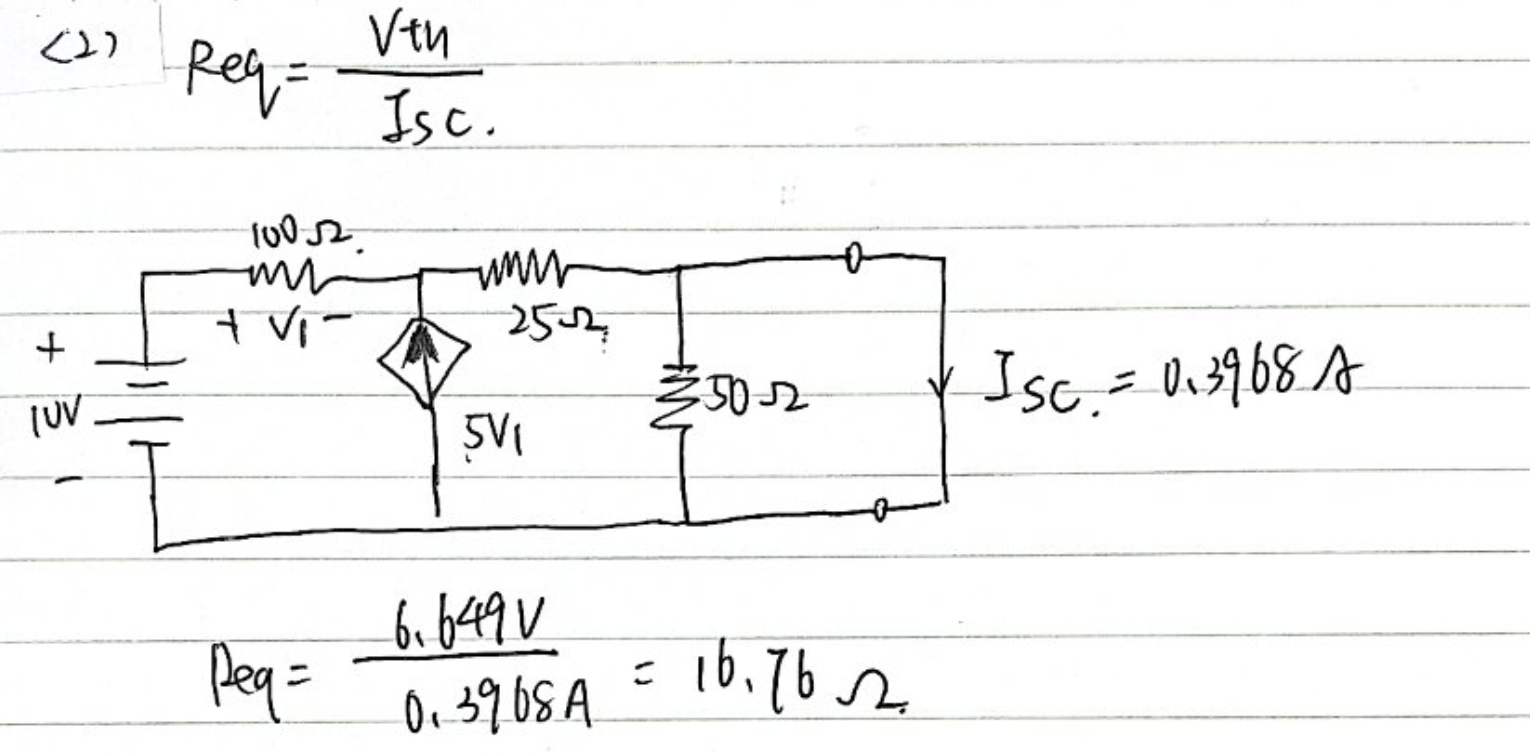 <2> Req = Vth / Isc.
100Ω.
+ V1 - 25Ω
+
10V 5V1 50Ω Isc. = 0.3968 A
-
Req = 6.649V / 0.3968A = 16.76 Ω.